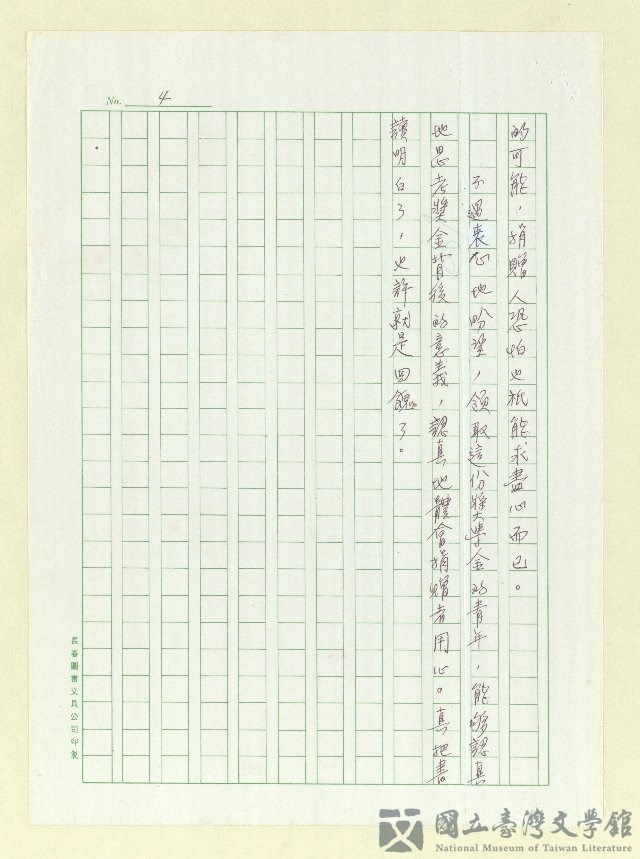 No. 4
的可能，捐贈人恐怕也祇能求盡心而已。
不過衷心地盼望，領取這份獎學金的青年，能夠認真
地思考獎金背後的意義，認真地體會捐贈者用心。真把書
讀明白了，也許就是回饋了。
長春圖書文具公司印製
國立臺灣文學館
National Museum of Taiwan Literature